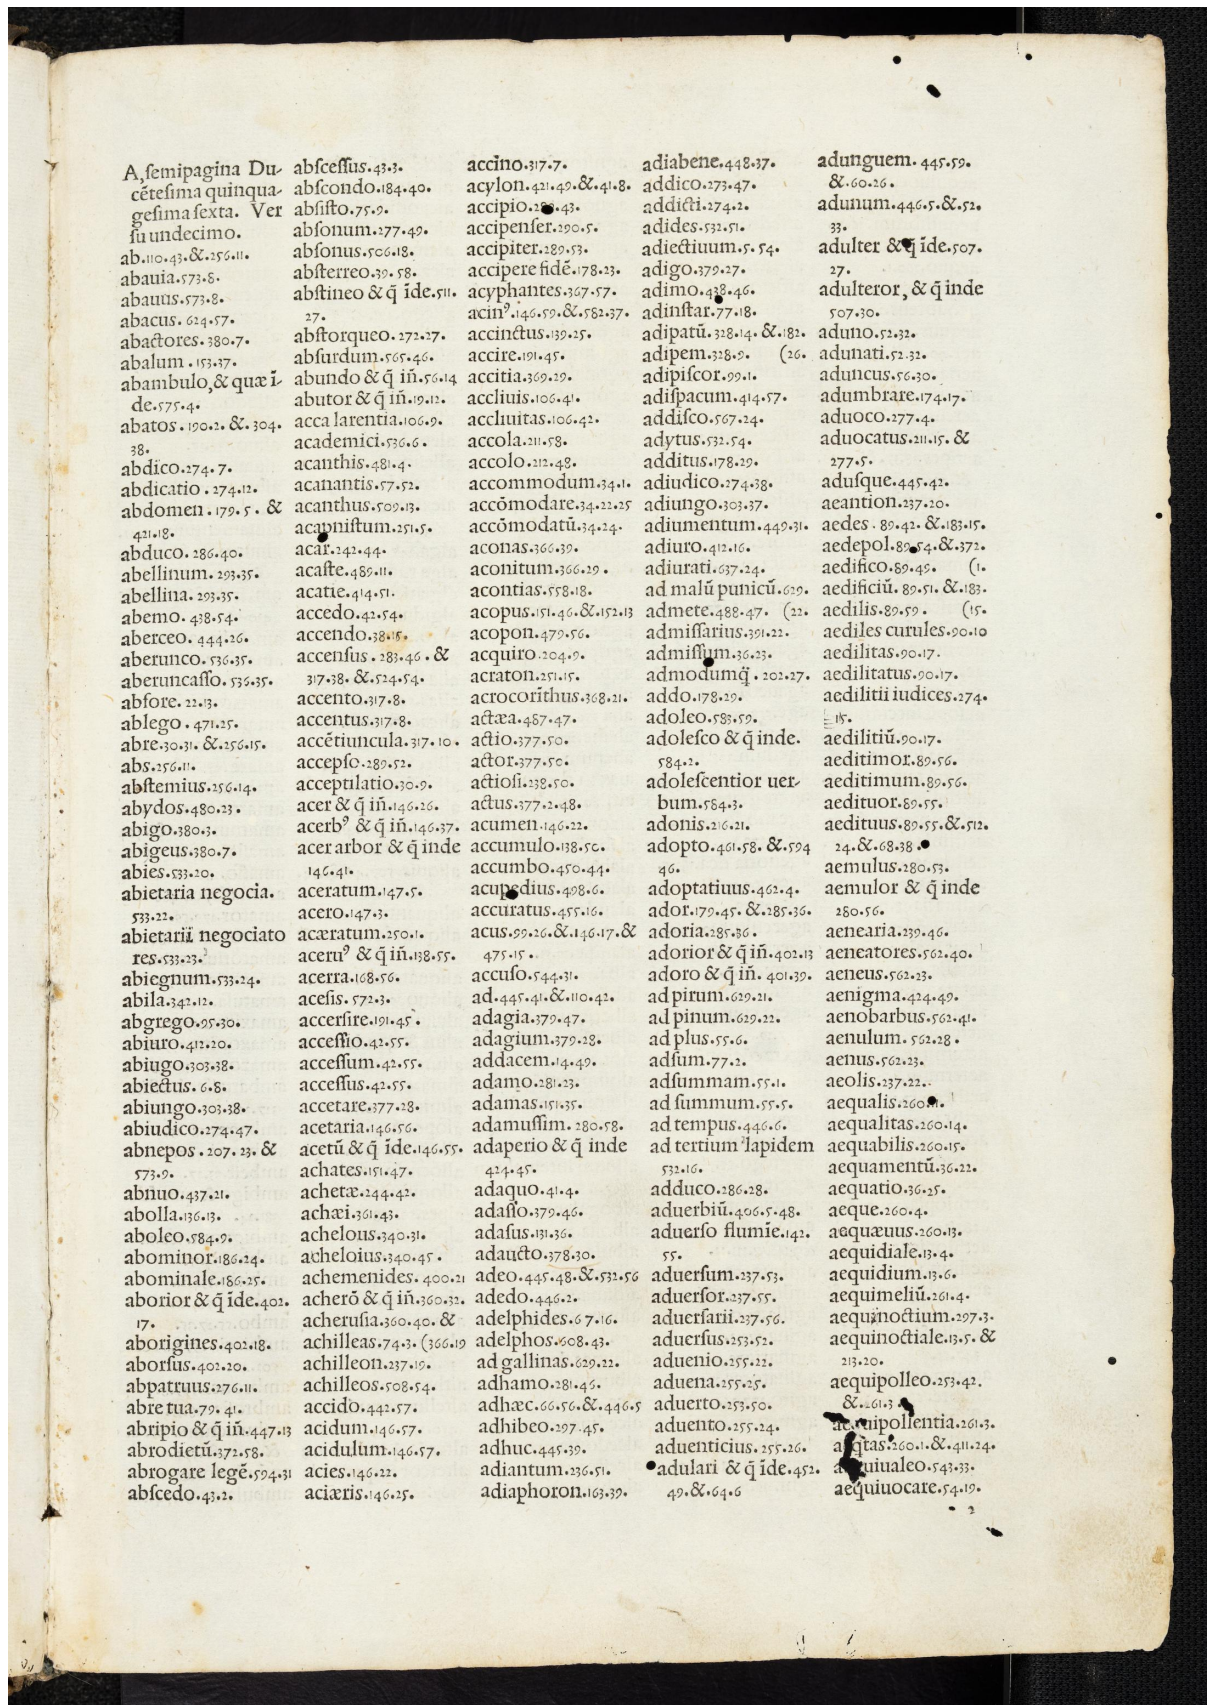 A, semipagina Du-
cētesima quinqua-
gesima sexta. Ver
su undecimo.
ab.110.43.&.256.11.
abauia.573.8.
abauus.573.8.
abacus.624.57.
abactores.380.7.
abalum.153.37.
abambulo,& quæ ī-
de.575.4.
abatos.190.2.&.304.
38.
abdico.274.7.
abdicatio.274.12.
abdomen.179.5.&
421.18.
abduco.286.40.
abellinum.293.35.
abellina.293.35.
abemo.438.54.
aberceo.444.26.
aberunco.536.35.
aberuncasso.536.35.
abfore.22.13.
ablego.471.25.
abre.30.31.&.256.15.
abs.256.11.
abstemius.256.14.
abydos.480.23.
abigo.380.3.
abigeus.380.7.
abies.533.20.
abietaria negocia.
533.22.
abietarii negociato
res.533.23.
abiegnum.533.24.
abila.342.12.
abgrego.95.30.
abiuro.412.20.
abiugo.303.38.
abiectus.6.8.
abiungo.303.38.
abiudico.274.47.
abnepos.207.23.&
573.9.
abnuo.437.21.
abolla.136.13.
aboleo.584.9.
abominor.186.24.
abominale.186.25.
aborior & q̄ īde.402.
17.
aborigines.402.18.
aborsus.402.20.
abpatruus.276.11.
abre tua.79.41.
abripio & q̄ iñ.447.13
abrodietū.372.58.
abrogare legē.594.31
abscedo.43.2.
abscessus.43.3.
abscondo.184.40.
absisto.75.9.
absonum.277.49.
absonus.506.18.
absterreo.39.58.
abstineo & q̄ īde.511.
27.
abstorqueo.272.27.
absurdum.565.46.
abundo & q̄ iñ.56.14
abutor & q̄ iñ.19.12.
acca larentia.106.9.
academici.536.6.
acanthis.481.4.
acanantis.57.52.
acanthus.509.13.
acapnistum.251.5.
acar.242.44.
acaste.489.11.
acatie.414.51.
accedo.42.54.
accendo.38.15.
accensus.283.46.&
317.38.&.524.54.
accento.317.8.
accentus.317.8.
accētiuncula.317.10.
accepso.289.52.
acceptilatio.30.9.
acer & q̄ iñ.146.26.
acerbꝰ & q̄ iñ.146.37.
acer arbor & q̄ inde
146.41.
aceratum.147.5.
acero.147.3.
acæratum.250.1.
aceruꝰ & q̄ iñ.138.55.
acerra.168.56.
acesis.572.3.
accersire.191.45.
accessio.42.55.
accessum.42.55.
accessus.42.55.
accetare.377.28.
acetaria.146.56.
acetū & q̄ īde.146.55.
achates.151.47.
achetæ.244.42.
achæi.361.43.
achelous.340.31.
acheloius.340.45.
achemenides.400.21
acherō & q̄ iñ.360.32.
acherusia.360.40.&
achilleas.74.3.(366.19
achilleon.237.19.
achilleos.508.54.
accido.442.57.
acidum.146.57.
acidulum.146.57.
acies.146.22.
aciæris.146.25.
accino.317.7.
acylon.421.49.&.41.8.
accipio.43.
accipenser.290.5.
accipiter.289.53.
accipere fidē.178.23.
acyphantes.367.57.
æcinꝰ.146.59.&.582.37.
accinctus.139.25.
accire.191.45.
accitia.369.29.
accliuis.106.41.
accliuitas.106.42.
accola.211.58.
accolo.212.48.
accommodum.34.1.
accōmodare.34.22.25
accōmodatū.34.24.
aconas.366.39.
aconitum.366.29.
acontias.558.18.
acopus.151.46.&.152.13
acopon.479.56.
acquiro.204.9.
acraton.251.15.
acrocorīthus.368.21.
actæa.487.47.
actio.377.50.
actor.377.50.
actiosi.238.50.
actus.377.2.48.
acumen.146.22.
accumulo.138.50.
accumbo.450.44.
acupedius.498.6.
accuratus.455.16.
acus.99.26.&.146.17.&
475.15.
accuso.544.31.
ad.445.41.&.110.42.
adagia.379.47.
adagium.379.28.
addacem.14.49.
adamo.281.23.
adamas.151.35.
adamussim.280.58.
adaperio & q̄ inde
424.45.
adaquo.41.4.
adasso.379.46.
adasus.131.36.
adaucto.378.30.
adeo.445.48.&.532.56
adedo.446.2.
adelphides.67.16.
adelphos.608.43.
ad gallinas.629.22.
adhamo.281.46.
adhæc.66.56.&.446.5
adhibeo.297.45.
adhuc.445.39.
adiantum.236.51.
adiaphoron.163.39.
adiabene.448.37.
addico.273.47.
addicti.274.2.
adides.532.51.
adiectiuum.5.54.
adigo.379.27.
adimo.438.46.
adinstar.77.18.
adipatū.328.14.&.182.
adipem.328.9. (26.
adipiscor.99.1.
adispacum.414.57.
addisco.567.24.
adytus.532.54.
additus.178.29.
adiudico.274.38.
adiungo.303.37.
adiumentum.449.31.
adiuro.412.16.
adiurati.637.24.
ad malū punicū.629.
admete.488.47. (22.
admissarius.391.22.
admissum.36.23.
admodumq̄.202.27.
addo.178.29.
adoleo.583.59.
adolesco & q̄ inde.
584.2.
adolescentior uer-
bum.584.3.
adonis.216.21.
adopto.461.58.&.594
46.
adoptatiuus.462.4.
ador.179.45.&.285.36.
adoria.285.36.
adorior & q̄ iñ.402.13
adoro & q̄ iñ.401.39.
ad pirum.629.21.
ad pinum.629.22.
ad plus.55.6.
adsum.77.2.
adsummam.55.1.
ad summum.55.5.
ad tempus.446.6.
ad tertium lapidem
532.16.
adduco.286.28.
aduerbiū.406.5.48.
aduerso flumīe.142.
55.
aduersum.237.53.
aduersor.237.55.
aduersarii.237.56.
aduersus.253.52.
aduenio.255.22.
aduena.255.25.
aduerto.253.50.
aduento.255.24.
aduenticius.255.26.
adulari & q̄ īde.452.
49.&.64.6
adunguem.445.59.
&.60.26.
adunum.446.5.&.52.
33.
adulter & q̄ īde.507.
27.
adulteror, & q̄ inde
507.30.
aduno.52.32.
adunati.52.32.
aduncus.56.30.
adumbrare.174.17.
aduoco.277.4.
aduocatus.211.15.&
277.5.
adusque.445.42.
aeantion.237.20.
aedes.89.42.&.183.15.
aedepol.89.54.&.372.
aedifico.89.49. (1.
aedificiū.89.51.&.183.
aedilis.89.59. (15.
aediles curules.90.10
aedilitas.90.17.
aedilitatus.90.17.
aedilitii iudices.274.
15.
aedilitiū.90.17.
aeditimor.89.56.
aeditimum.89.56.
aedituor.89.55.
aedituus.89.55.&.512.
24.&.68.38.
aemulus.280.53.
aemulor & q̄ inde
280.56.
aenearia.239.46.
aeneatores.562.40.
aeneus.562.23.
aenigma.424.49.
aenobarbus.562.41.
aenulum.562.28.
aenus.562.23.
aeolis.237.22.
aequalis.260.
aequalitas.260.14.
aequabilis.260.15.
aequamentū.36.22.
aequatio.36.25.
aeque.260.4.
aequæuus.260.13.
aequidiale.13.4.
aequidium.13.6.
aequimeliū.261.4.
aequinoctium.297.3.
aequinoctiale.13.5.&
213.20.
aequipolleo.253.42.
&.261.3
aequipollentia.261.3.
260.1.&.411.24.
543.33.
aequiuocare.54.19.
2